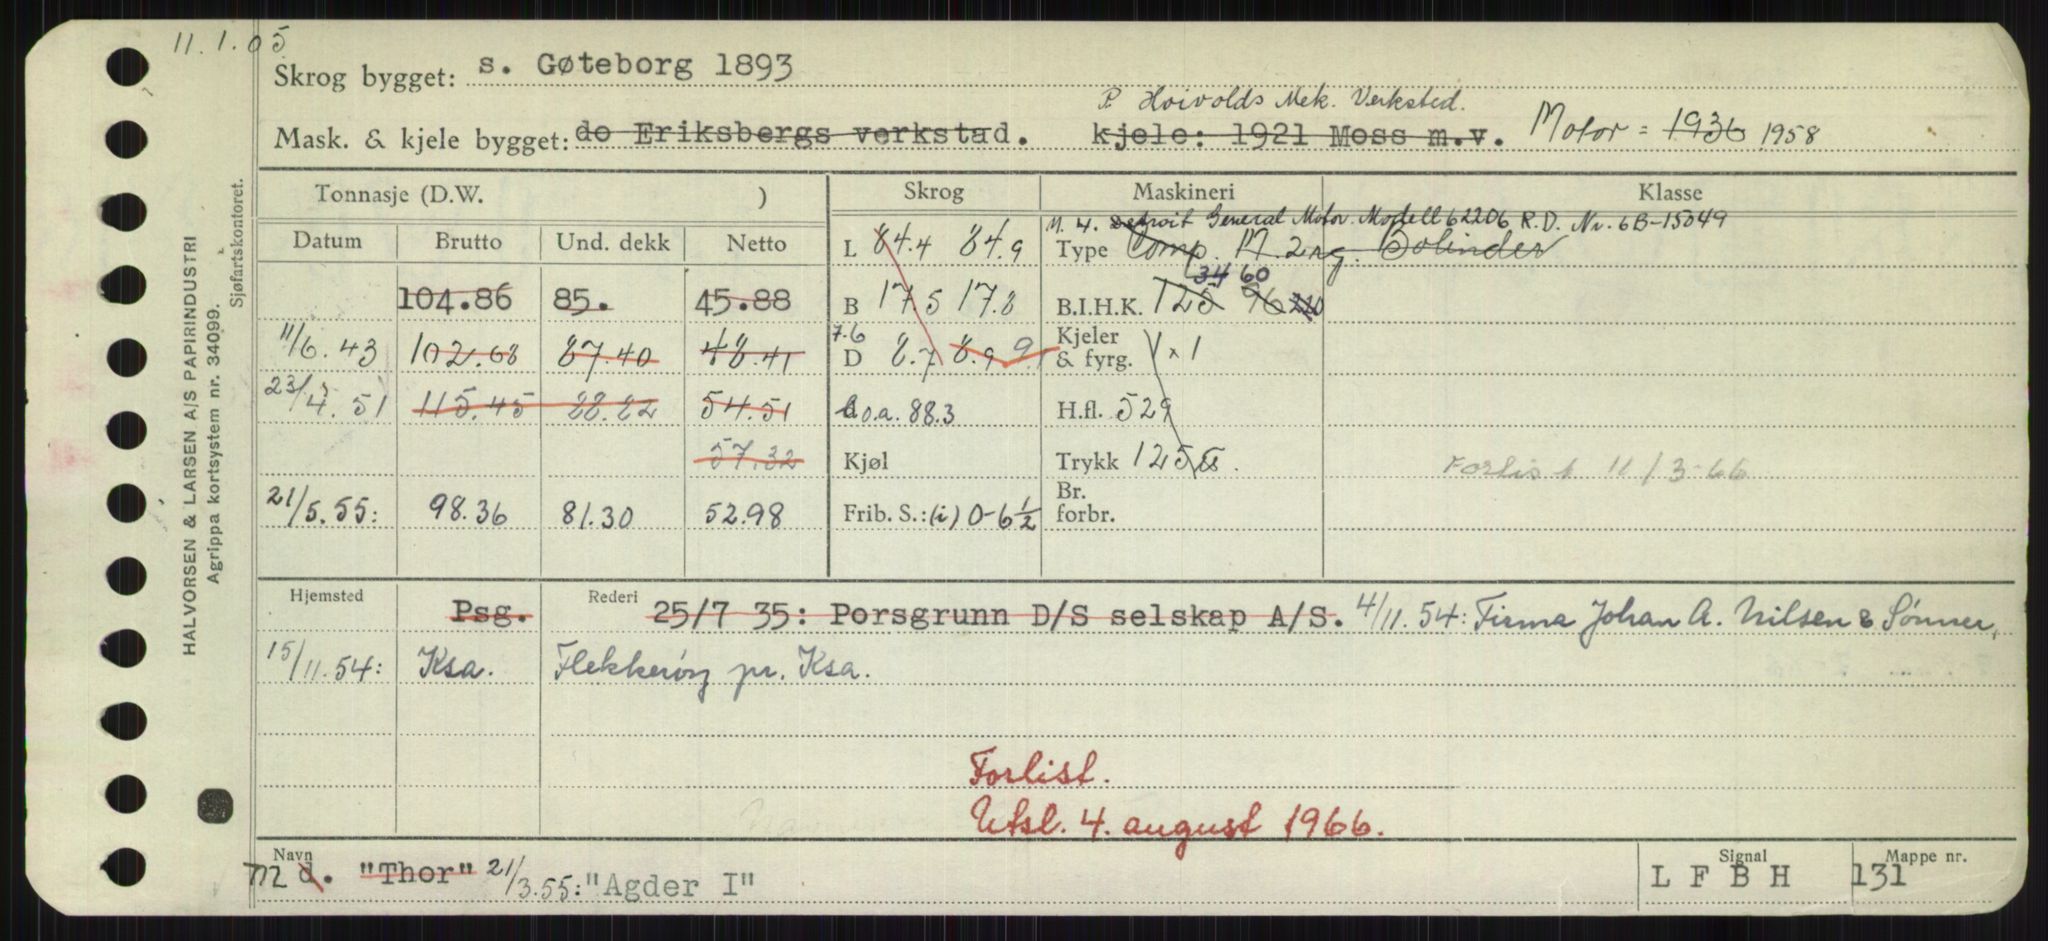 11.1.05
Skrog bygget: s. Gøteborg 1893
P. Hoivolds Mek. Verksted.
Mask. & kjele bygget: do Eriksbergs verkstad. kjele: 1921 Moss m.v. Motor = 1936 1958
Tonnasje (D.W. ) Skrog Maskineri Klasse
M. 4. Detroit General Motor. Modell 62206 R.D. Nr. 6B-15049
Datum Brutto Und. dekk Netto L 84.4 84.9 Type Comp. M. 2 Bolinder
34 60
104.86 85. 45.88 B 17.5 17.8 B.I.H.K. 125 96 220
7.6
11/6.43 102.68 87.40 48.41 D 8.7 8.9 9. Kjeler & fyrg. 1 x 1
23/4.51 115.45 88.82 54.51 o.a. 88.3 H.fl. 529
57.32 Kjøl Trykk 125 Forlist 11/3-66
21/5.55: 98.36 81.30 52.98 Frib. S.: (i) 0-6½ Br. forbr.
Hjemsted Psg. Rederi 25/7 35: Porsgrunn D/S selskap A/S. 4/11.54: Firma Johan A. Nilsen & Sønner,
15/11.54: Ksa. Flekkerøy pr. Ksa.
Forlist.
Utsl. 4. august 1966.
Navn Signal Mappe nr.
m d. "Thor" 21/3.55: "Agder I" L F B H 131
HALVORSEN & LARSEN A/S PAPIRINDUSTRI
Agrippa kortsystem nr. 34099.
Sjøfartskontoret.